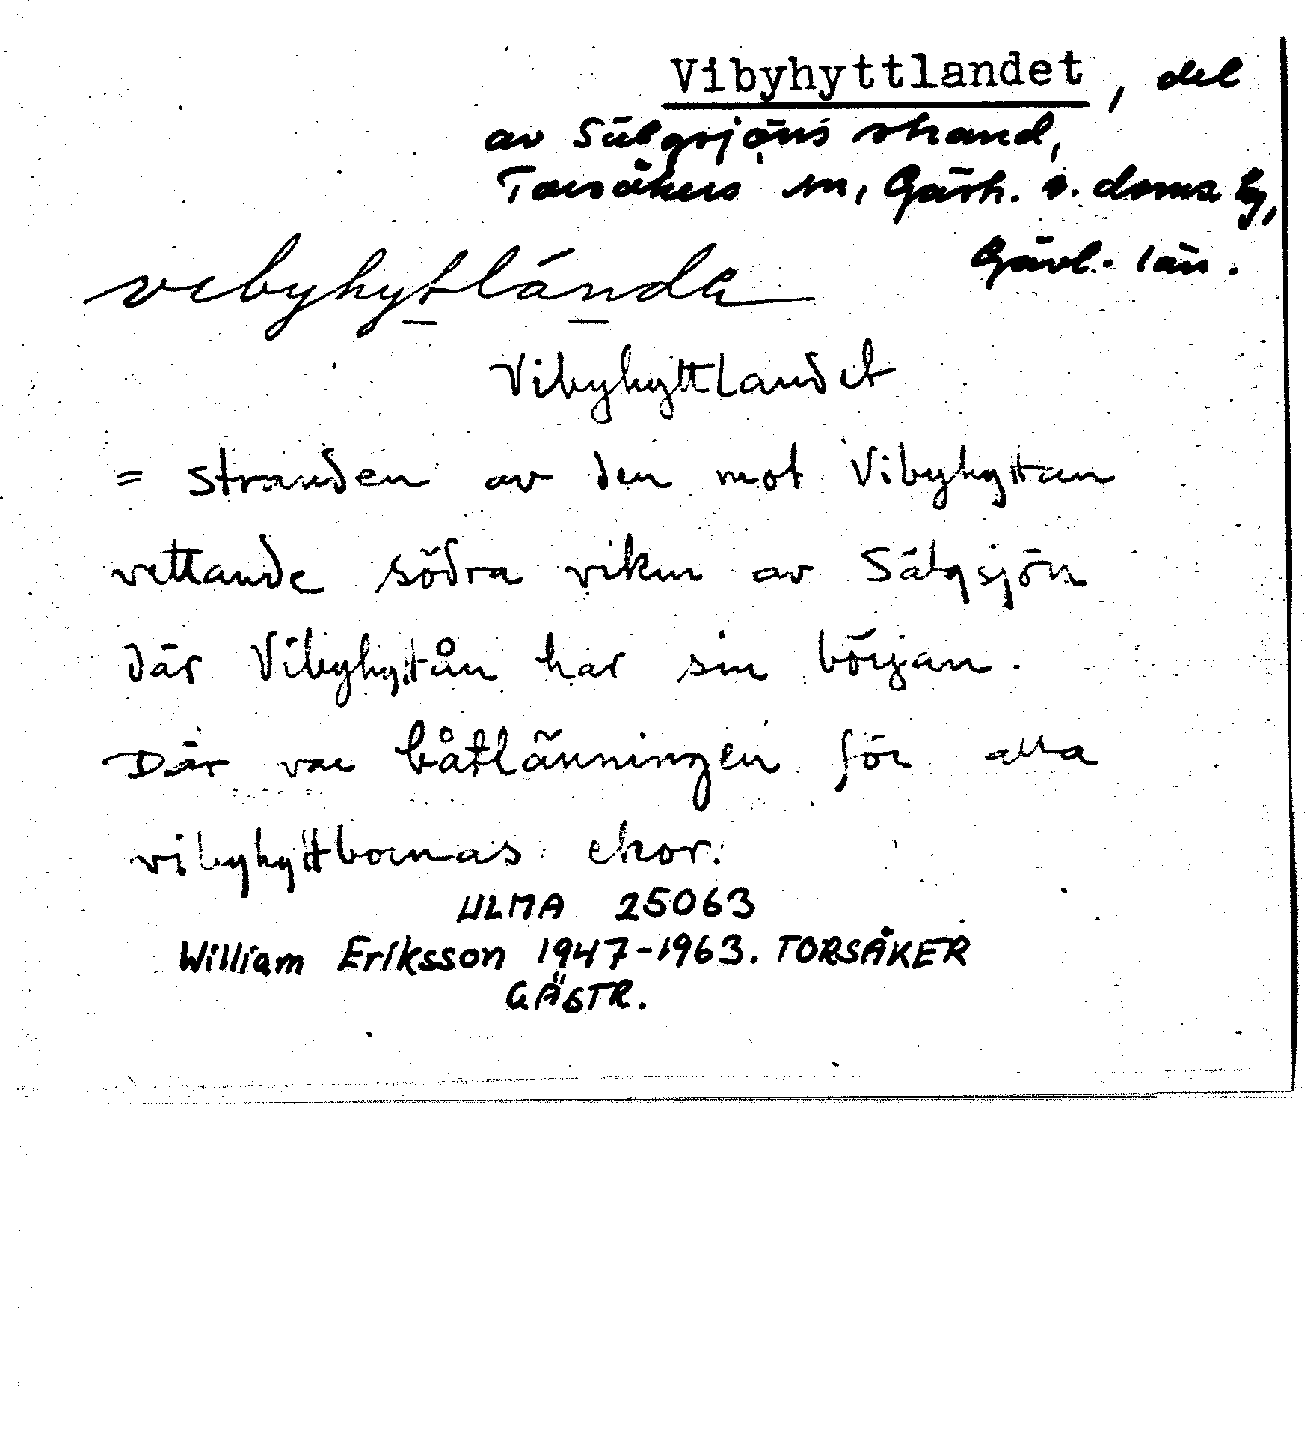 Vibyhyttlandet, del
av Sälgsjöns strand,
Torsåkers sn, Gästr. ö. doms lg,
Gävl. län.
vibyhytlánda
Vibyhyttlandet
= stranden av den mot Vibyhyttan
vettande södra viken av Sälgsjön
där Vibyhyttån har sin början.
Där var båtlänningen för alla
vibyhyttbornas ekor.
ULMA 25063
William Eriksson 1947-1963. TORSÅKER
GÄSTR.